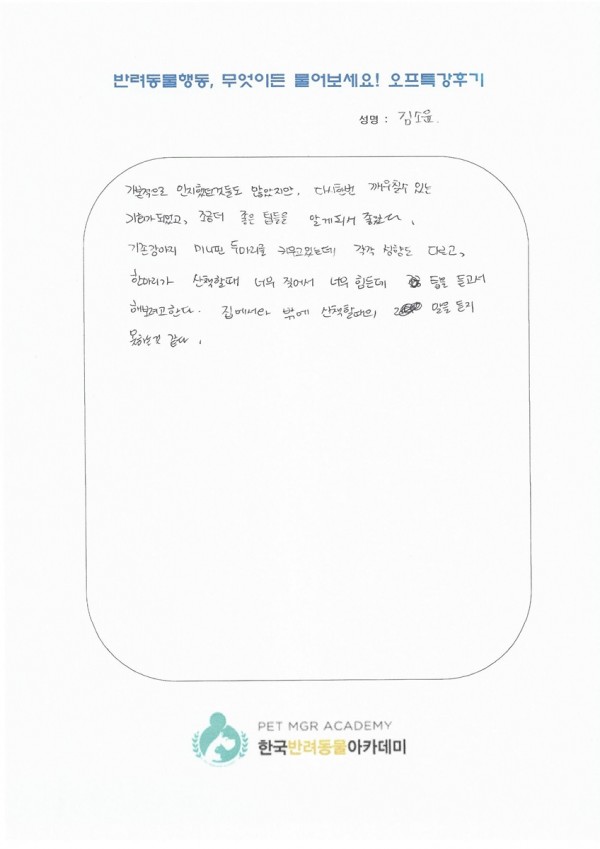 반려동물행동, 무엇이든 물어보세요! 오프특강후기
성명 : 김소윤.
개별적으로 인지했던것들도 많았지만, 다시한번 깨우칠수 있는
기회가 되었고, 조금더 좋은 팁들을 알게되서 좋았다.
기존강아지 미니핀 두마리를 키우고있는데 각각 성향도 다르고,
한마리가 산책할때 너무 짖어서 너무 힘든데 팁을 듣고서
해보려고한다. 집에서와 밖에 산책할때의 말을 듣지
못하는것 같다.
PET MGR ACADEMY
한국반려동물아카데미